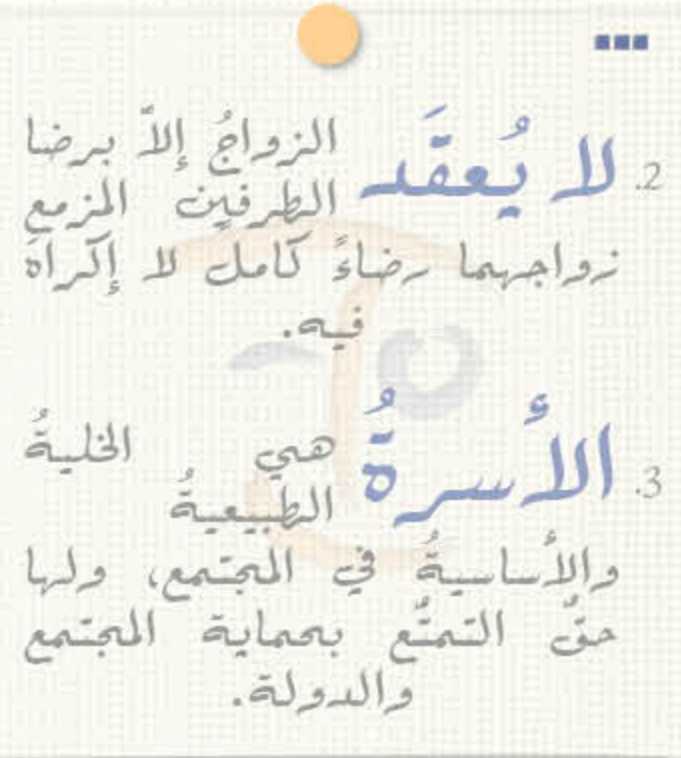 2. لا يُعقَد الزواجُ إلاّ برضا
الطرفين المزمع
زواجهما رضاءً كامل لا إكراهَ
فيه.
3. الأسرةُ هي الخليةُ
الطبيعيةُ
والأساسيةُ في المجتمع، ولها
حقُّ التمتُّع بحماية المجتمع
والدولة.